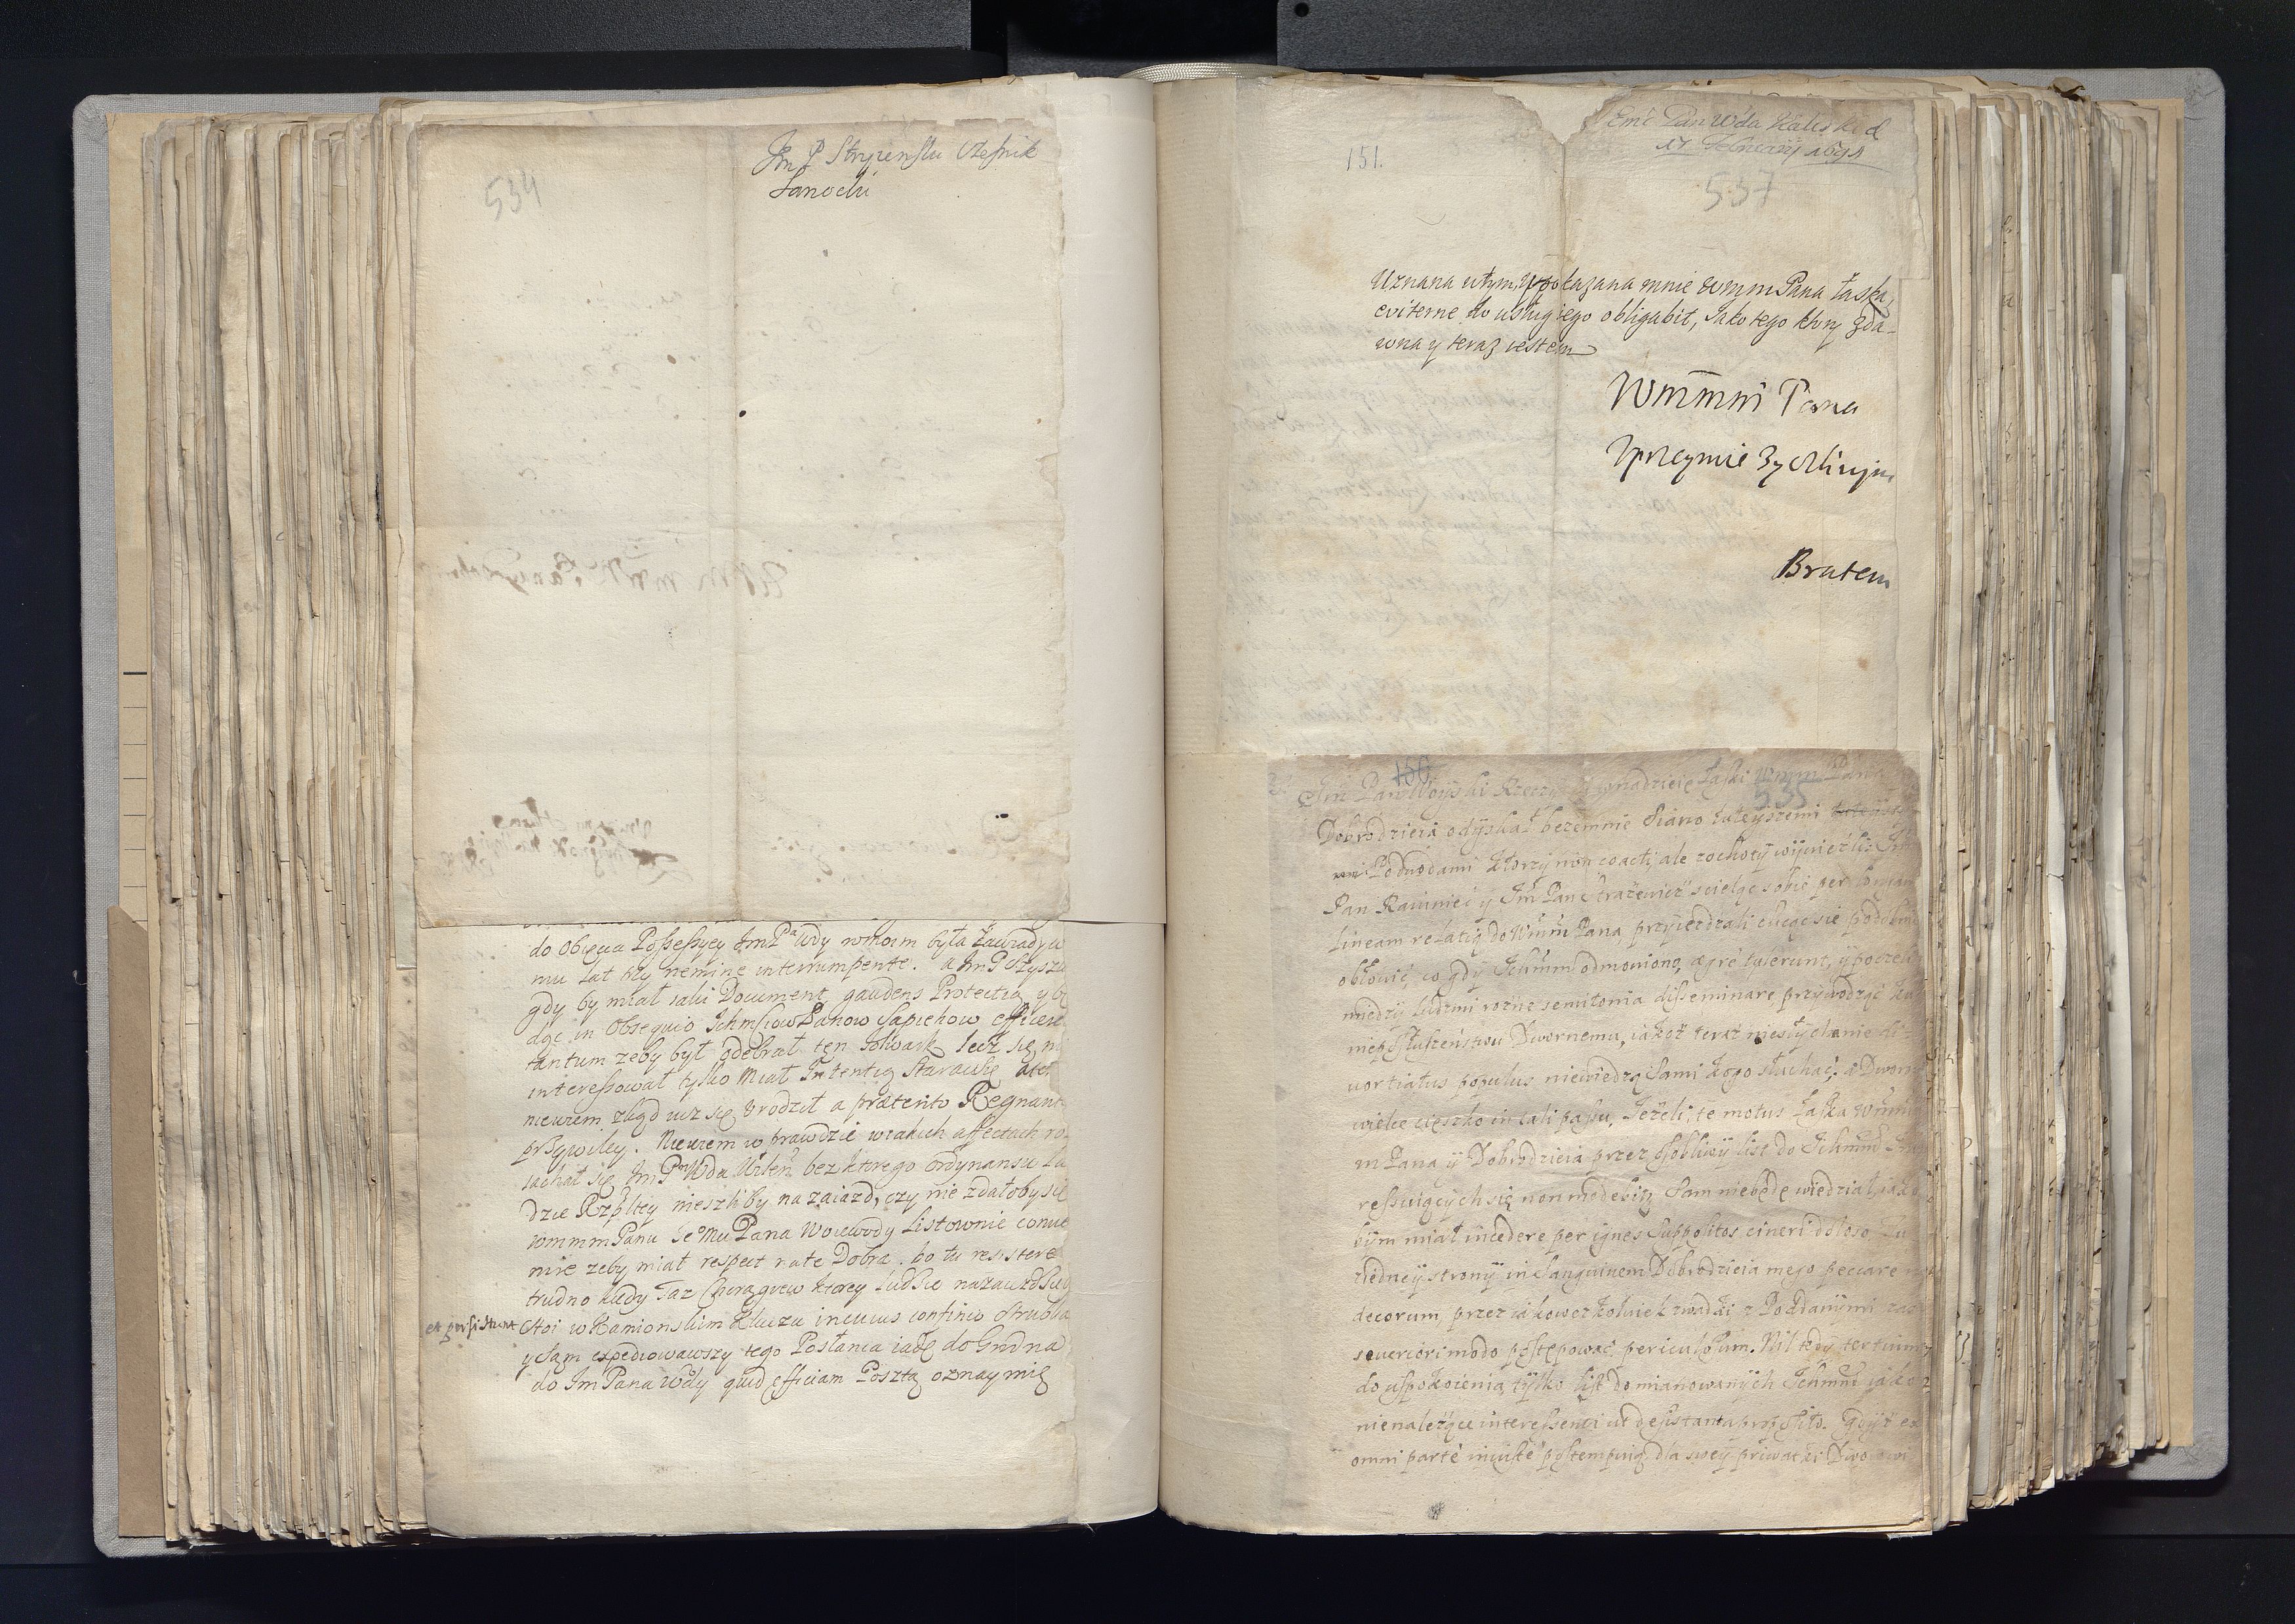 534
Im P Strzeński Cześnik
Sanocki
do Obięcia Possessyey Im Pa Wdy w ktorm była Zawiady w
mu lat trzy nemine interrumpente. a Im P Szysz
gdy by miał taki Document, gaudens Protectią y bę
dąc in Obsequio Ichmściow Panow Sapiehow efficere
tantum zeby był odebrał ten folwark, lecz się ni
interessował tylko miał Intentią staracsię
niewiem zkąd usz się urodził a prætento Regnant
przywiley. Niewiem w prawdzie w iakich affectach ro
iachał się Im P Wda Wileń bez ktorego ordynansu Lu
dzie Rzpltey nieszliby na zaiazd, czy nie zdałobysię
WmmmPanu Je Mu Pana Woiewody Listownie conue
nire zeby miał respect nate Dobra. bo tu resistere
trudno kiedy Taz Chorągiew ktorey ludzie nazaiezdzie
et persistunt
stoi w Kamionskim Kluczu in cuius confinio
y Sam expediowawszy tego Posłańca iadę do Grodna
do Im Pana Wdy quid efficiam Posztą oznaymię
151.
Pan Wda Kaliski d
17 1698
537
Uznana w tym, y pokazana mnie WmmPana łaska,
eviterne do usług iego obligabit, Jako tego ktory zda-
wna y teraz iestem
Wmmm Pana
Uprzeymie Zyczliwym
Bratem
150
535
Im Pan Woyski Rzeczy nadzieię łaski Wmm Pana
Dobrodzieia odyskał bezemnie Siano tuteyszemi
Podwodami ktorzy non coacti, ale zochotÿ wÿwieźli: Im
Pan Rawiniec ÿ Im Pan Stracewicz scieląc sobie per
lineam relatią do Wmm Pana przyiezdzali chcąc się podobno
obłowić, co gdÿ Ichmm odmowiono, ægre tulerunt, ÿ poczeli
miedzÿ ludzmi rozne semitonia disseminare, przÿwodząc
nieposłuszeństwu Dwornemu, iakoż teraz niesłÿchanie di
uortiatus populus niewiedzą Sami kogo słuchac; a Dworo
wielce cięszko in tali passu, Jeżeli te motus łaska Wmm
m Pana ÿ Dobrodzieia przez osobliwÿ list do Ichmm
ressuiącÿch się non modebit, Sam niebędę wiedział iako
bÿm miał incedere per ignes suppositos cineri doloso
ziedneÿ stronÿ in Sanguinem Dobrodzieia mego peccare
decorum, przez iakoweszkolwiek zwadki z Poddanÿmi
seueriori modo postępować periculosum. Nil tedÿ tertium
do uspokoienia tÿlko list do mianowanÿch Ichmm iako
nienależące interessenci ut desistant a proposito. Gdyż ex
omni parte iniuste postempuią dla sweÿ priwatki Dworowi